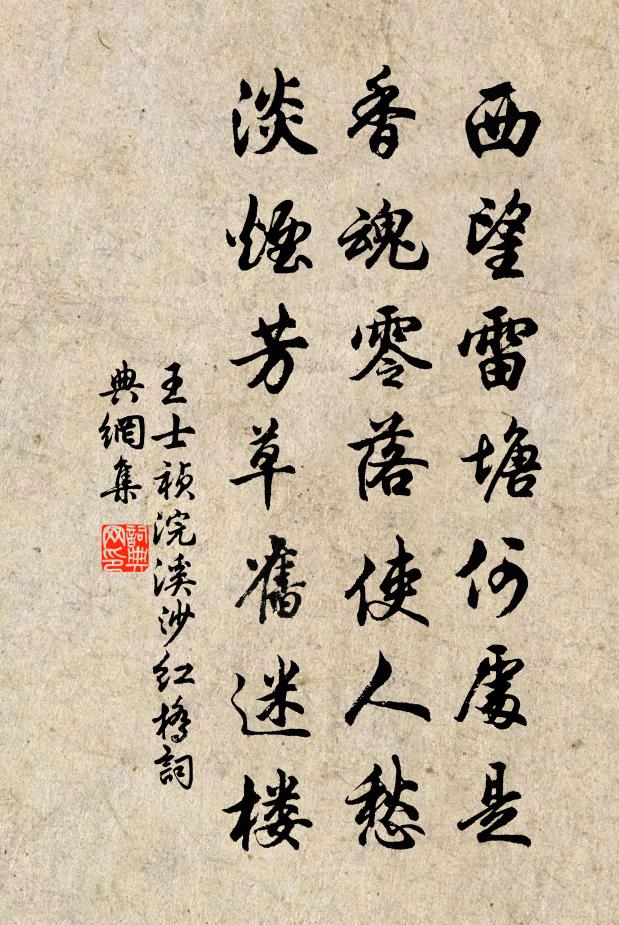 西望雷塘何處是
香魂零落使人愁
淡煙芳草舊迷楼
王士祯浣溪沙红橋詞
典網集
詞典
网印